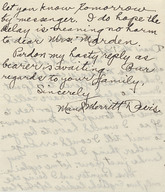 let you know tomorrow
by messenger. I do hope the
delay is meaning no harm
to dear Mrs. Marden.
Pardon my hasty reply as
bearer is waiting. Our
regards to your family,
Sincerely
Merritt